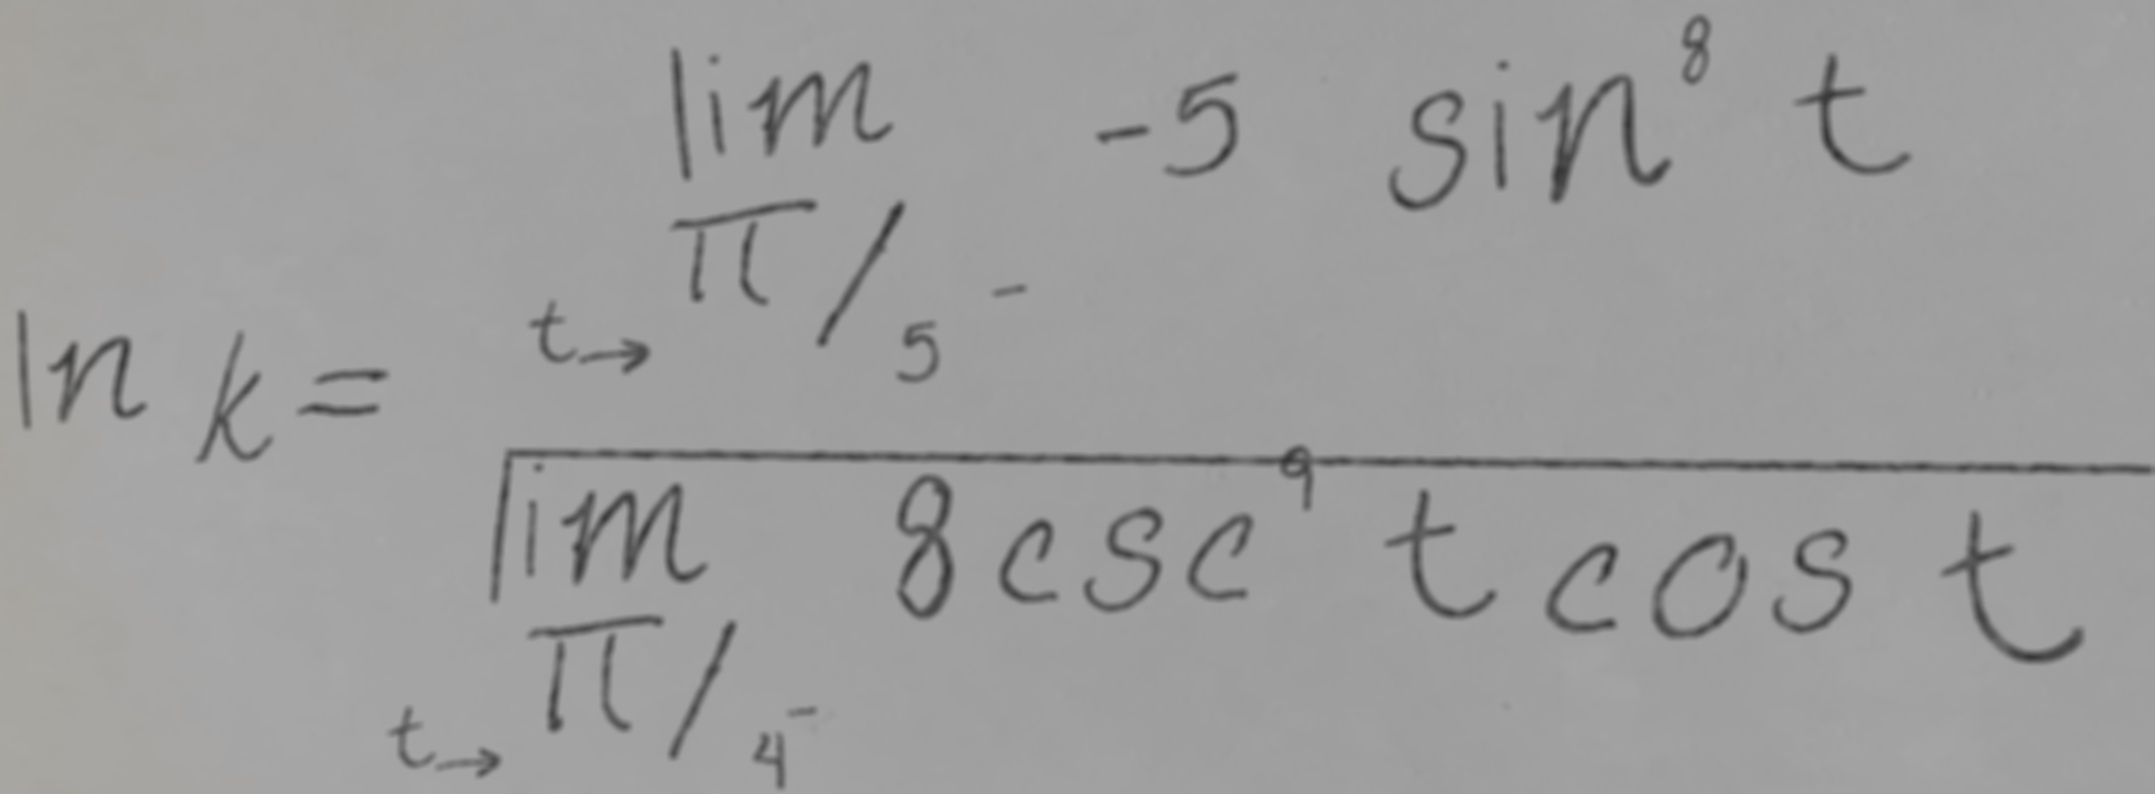 ln k = \frac{\lim_{t \to \pi/5^-} -5 \sin^8 t}{\lim_{t \to \pi/4^-} 8 \csc^9 t \cos t}